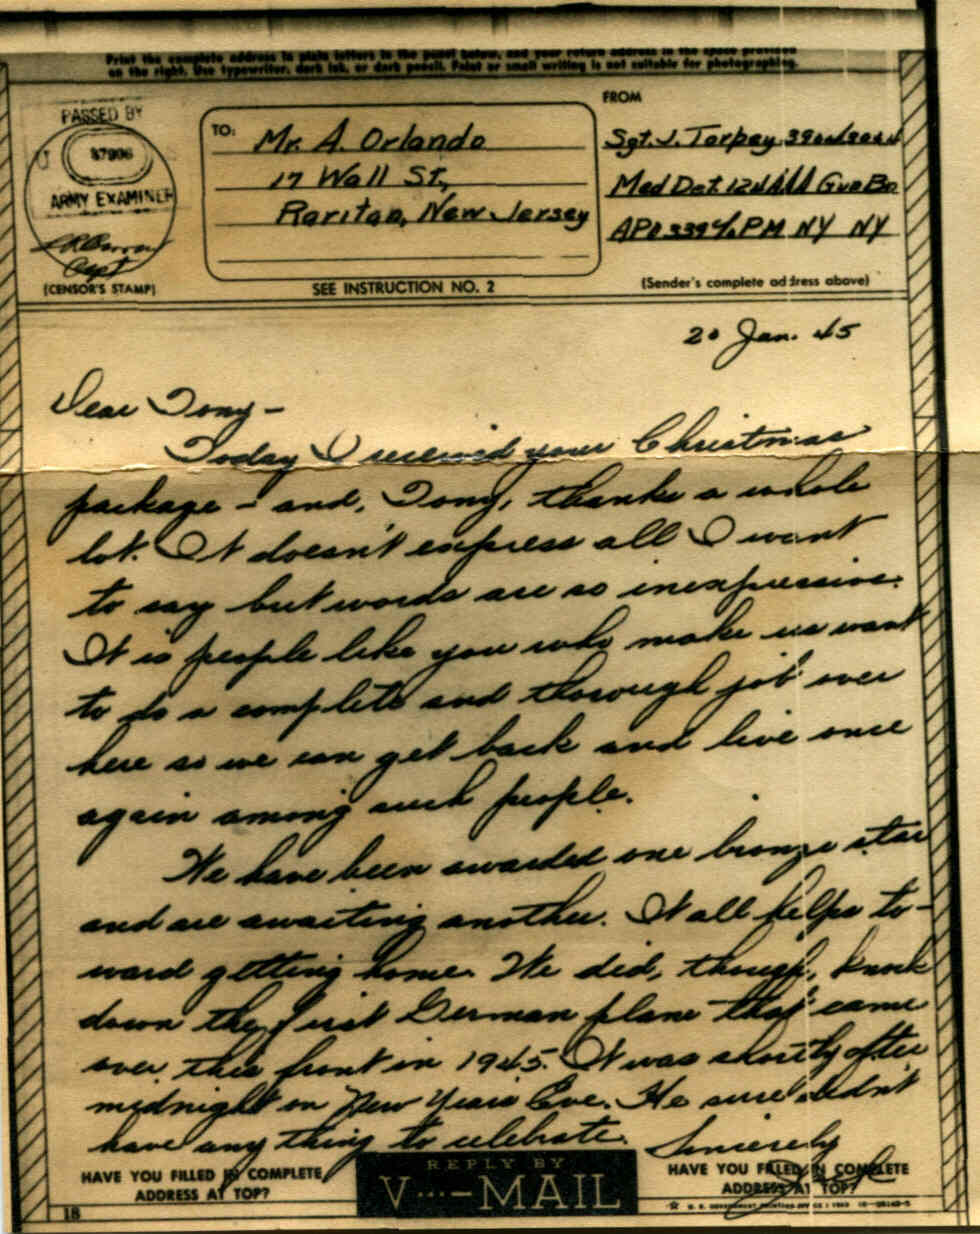 Print the complete address in plain letters in the panel below, and your return address in the space provided
on the right. Use typewriter, dark ink, or dark pencil. Faint or small writing is not suitable for photographing.
PASSED BY
U
37906
ARMY EXAMINER
Capt
(CENSOR'S STAMP)
TO:
Mr. A. Orlando
17 Wall St.,
Raritan, New Jersey
SEE INSTRUCTION NO. 2
FROM
Sgt. J. Torpey
Med Det. 124 AAA Gun Bn
APO 339 c/o PM NY NY
(Sender's complete address above)
20 Jan. 45
Dear Tony -
Today I received your Christmas
package - and, Tony, thanks a whole
lot. It doesn't express all I want
to say but words are so inexpressive.
It is people like you who make us want
to do a complete and thorough job over
here so we can get back and live once
again among such people.
We have been awarded one bronze star
and are awaiting another. It all helps to-
ward getting home. We did, though, knock
down the first German plane that came
over this front in 1945. It was shortly after
midnight on New Years Eve. He sure didn't
have any thing to celebrate.
Sincerely
Jack
HAVE YOU FILLED IN COMPLETE
ADDRESS AT TOP?
REPLY BY
V···—MAIL
HAVE YOU FILLED IN COMPLETE
ADDRESS AT TOP?
18
U. S. GOVERNMENT PRINTING OFFICE